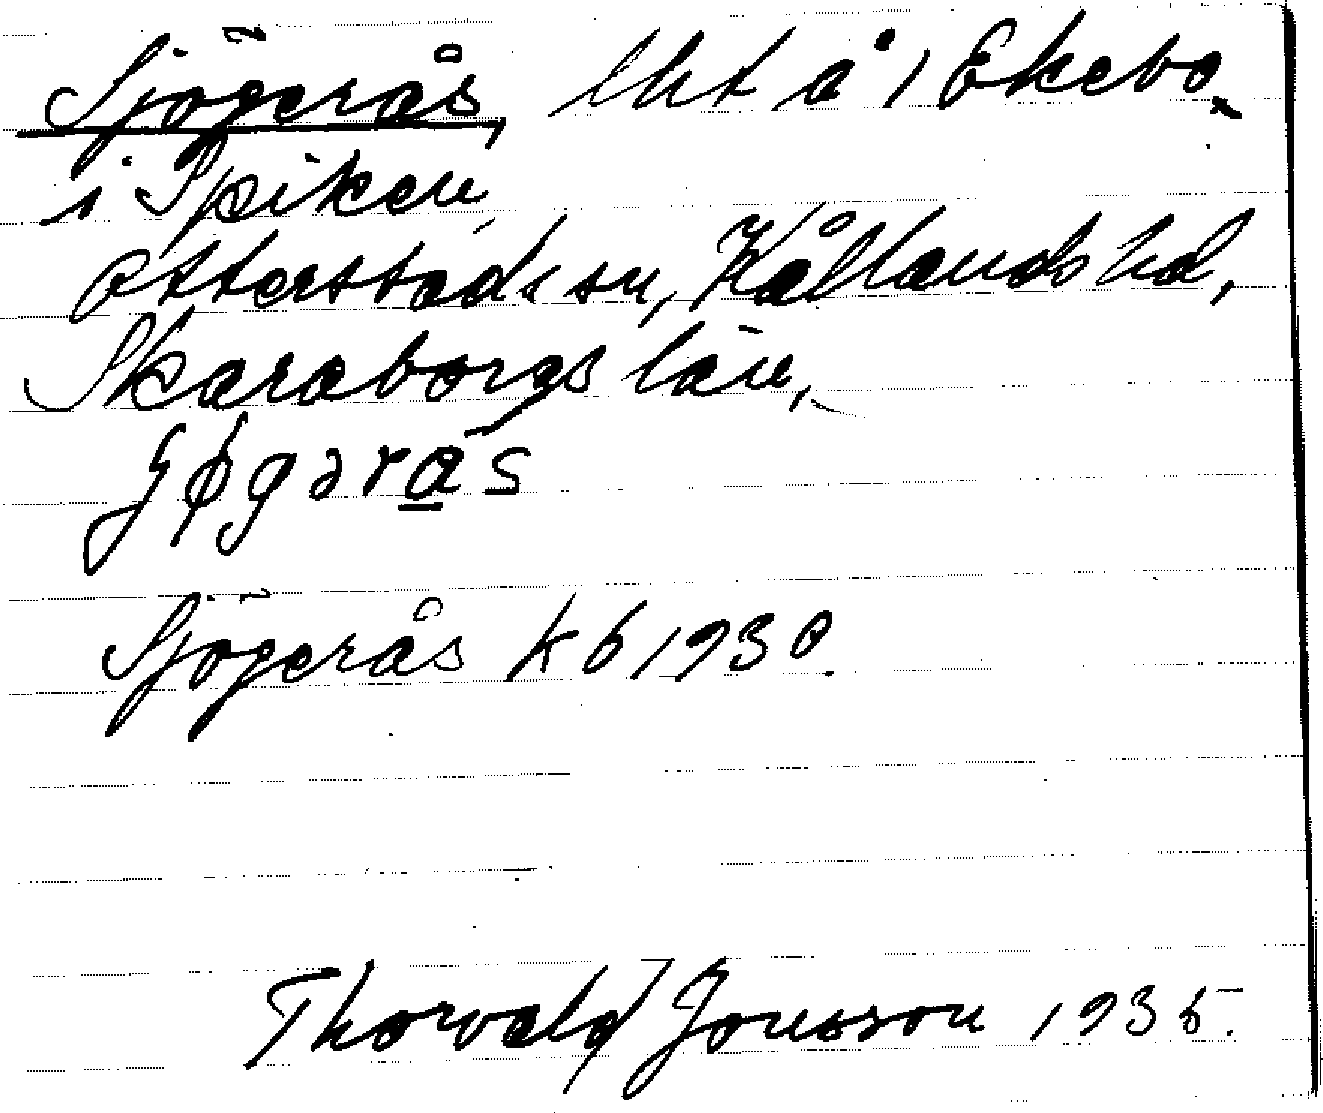 Sjögerås, lht å 1 Ekebo
i Spiken
Otterstads sn, Kållands hd,
Skaraborgs län,
Sjögerås kb 1930.
Thorvald Jonsson 1935.